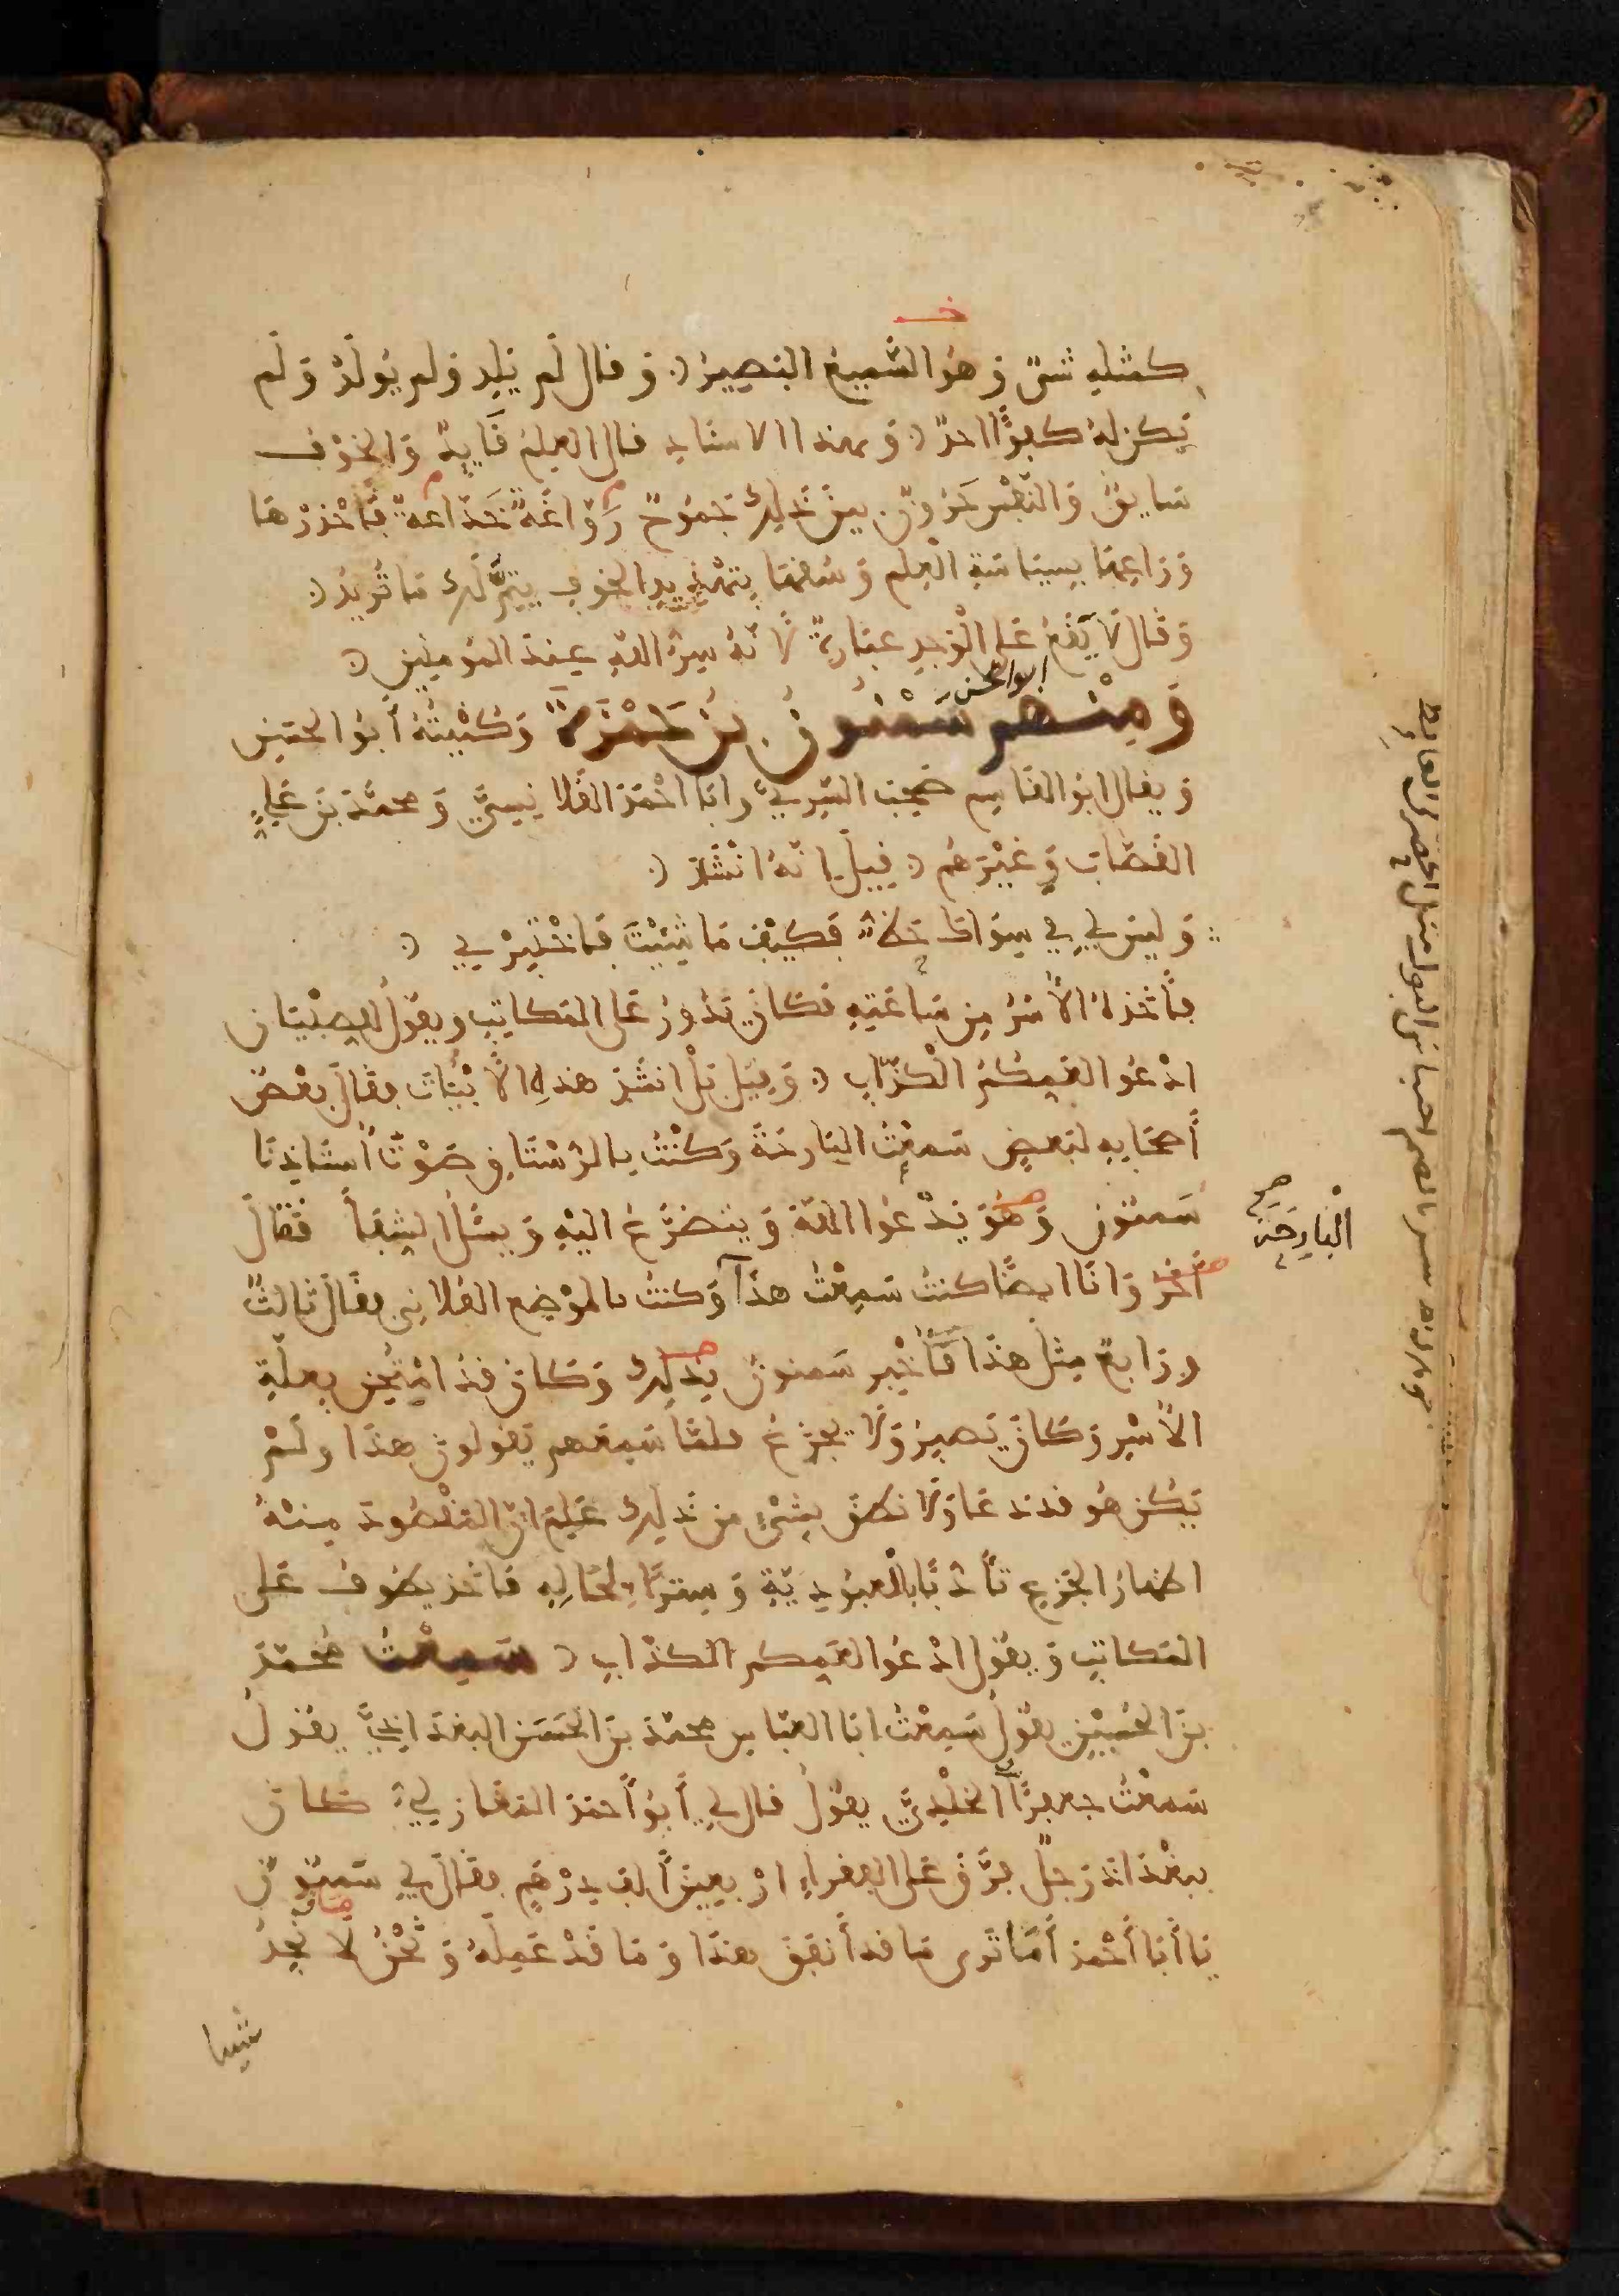 كمثله شىٌ وهُوَ السَّمِيعُ البَصِيرُ وَقالَ لَم يَلِد وَلم يُولَدْ وَلَم
يَكن لهُ كفُوًا احدٌ وَبهذا الاسنَادِ قال العِلمُ قَايِدٌ وَالخَوْف
سَايقٌ وَالنَّفْس حَرُونٌ بين ذَلِكَ جَمُوحٌ رَوَّاغَةٌ خَدّاعةٌ فَاحْذرْهَا
وَرَاعِهَا بِسيَاسَةِ العِلم وَسُقهَا بِتَهْدِيدِ الخَوفِ يَتِمُّ لَكَ مَا تُرِيدُ
وَقَال لَا يَقَعُ عَلى الْوَجدِ عبَارةٌ لأَنّهُ سِرُّ اللهِ عِندَ المُومِنِين
وَمِنْهم سَمْنُونُ بْنُ حَمْزَةَ وَكُنْيَتُهُ أَبُو الحَسَنِ
ابو الحسن
وَيقال ابُو القَاسِم صَحِبَ السَّرِيَّ وابَا احْمَدَ القَلَانِسِيَّ وَمحمَّدَ بْنَ عَلِيٍّ
القَصَّابَ وَغَيْرَهُم قِيلَ انّهُ انْشَدَ
وَلَيسَ لِي فِي سِوَاكَ حَظٌّ فَكَيْفَ مَا شِئْتَ فَاخْتَبِرْنِي
فأَخَذهُ الأَسْرُ مِن سَاعَتِهِ فكَانَ يَدُورُ عَلى المَكَاتِبِ ويقولُ للصِبْيَان
ادْعُوا لِعَمِّكُمُ الْكَذَّابِ وَقِيلَ بَلْ انشَدَ هَذِهِ الأَبْيَاتَ فقَالَ بَعْضُ
أَصْحَابِهِ لبَعضٍ سَمِعْتُ البَارحَةَ وَكُنْتُ بالرُّسْتَاقِ صَوْتَ أُسْتَاذِنَا
سَمنُون وَهُوَ يَدْعُوا اللهَ وَيَتضَرَّعُ الَيْهِ وَيسْئَلُ الشِفَا فَقَالَ
البَارِحَة
آخَرُ وَانَا ايضًا كنتُ سَمِعْتُ هذَا وَكنتُ بالموْضِعِ الفُلانِي فقَالَ ثَالثٌ
ورَابعٌ مِثلَ هذَا فَأُخْبِر سَمنونُ بِذلِكَ وَكَانَ قَدْ امْتُحِنَ بعلّةِ
الأَسْرِ وَكَانَ يَصْبِرُ وَلَا يجزَعُ فلمَّا سَمِعَهم يَقولُونَ هذَا ولَمْ
يَكُن هُو قد دعَا وَلَا نَطَقَ بِشَىءٍ مِن ذَلِكَ عَلِمَ انَّ المَقْصُودَ مِنْهُ
اظهَارُ الجَزعِ تَأَدُّبًا بالْعبُودِيَّةِ وَسِترًا لحَالِهِ فَاخَذ يطُوفُ عَلى
المَكاتِبِ وَيقُول ادْعُوا لعَمِّكم الكَذّابِ سَمِعْتُ مُحَمّدَ
بنَ الحُسَيْنِ يقولُ سَمِعْتُ ابَا العبَّاسِ محمّدَ بنَ الحَسَنِ البَغدَادِيَّ يقُولُ
سَمعْتُ جعفرًا الخُلْدِيَّ يقُولُ قال لِي أَبُو أَحمدَ المغَازلِيُّ كَانَ
بِبغْدَاد رَجلٌ فَرَّقَ عَلى الفقراءِ ارْبعِينَ ألف دِرْهَمٍ فقَالَ لِي سَمنُونُ
يَا أَبَا أَحْمَدَ أَمَا تَرى مَا قد أَنفَقَ هذَا وَمَا قَدْ عَمِلَهُ وَنَحْنُ لَا نَجِدُ
شيئا